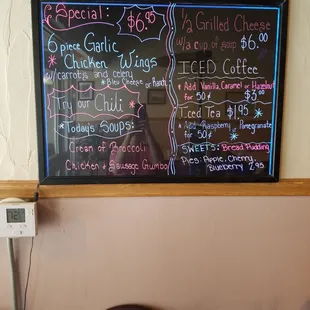 Special: $6.95
6 piece Garlic
Chicken Wings
w/carrots and celery
Bleu Cheese or Ranch
Try our Chili
Todays Soups:
Cream of Broccoli
Chicken & Sausage Gumbo
1/2 Grilled Cheese
w/a cup of soup $6.00
ICED Coffee
Add Vanilla, Caramel or Hazelnut
for 50¢ $3.00
Iced Tea $1.95
Add Raspberry or Pomegranate
for 50¢
SWEETS: Bread Pudding
Pies: Apple, Cherry,
Blueberry 2.95